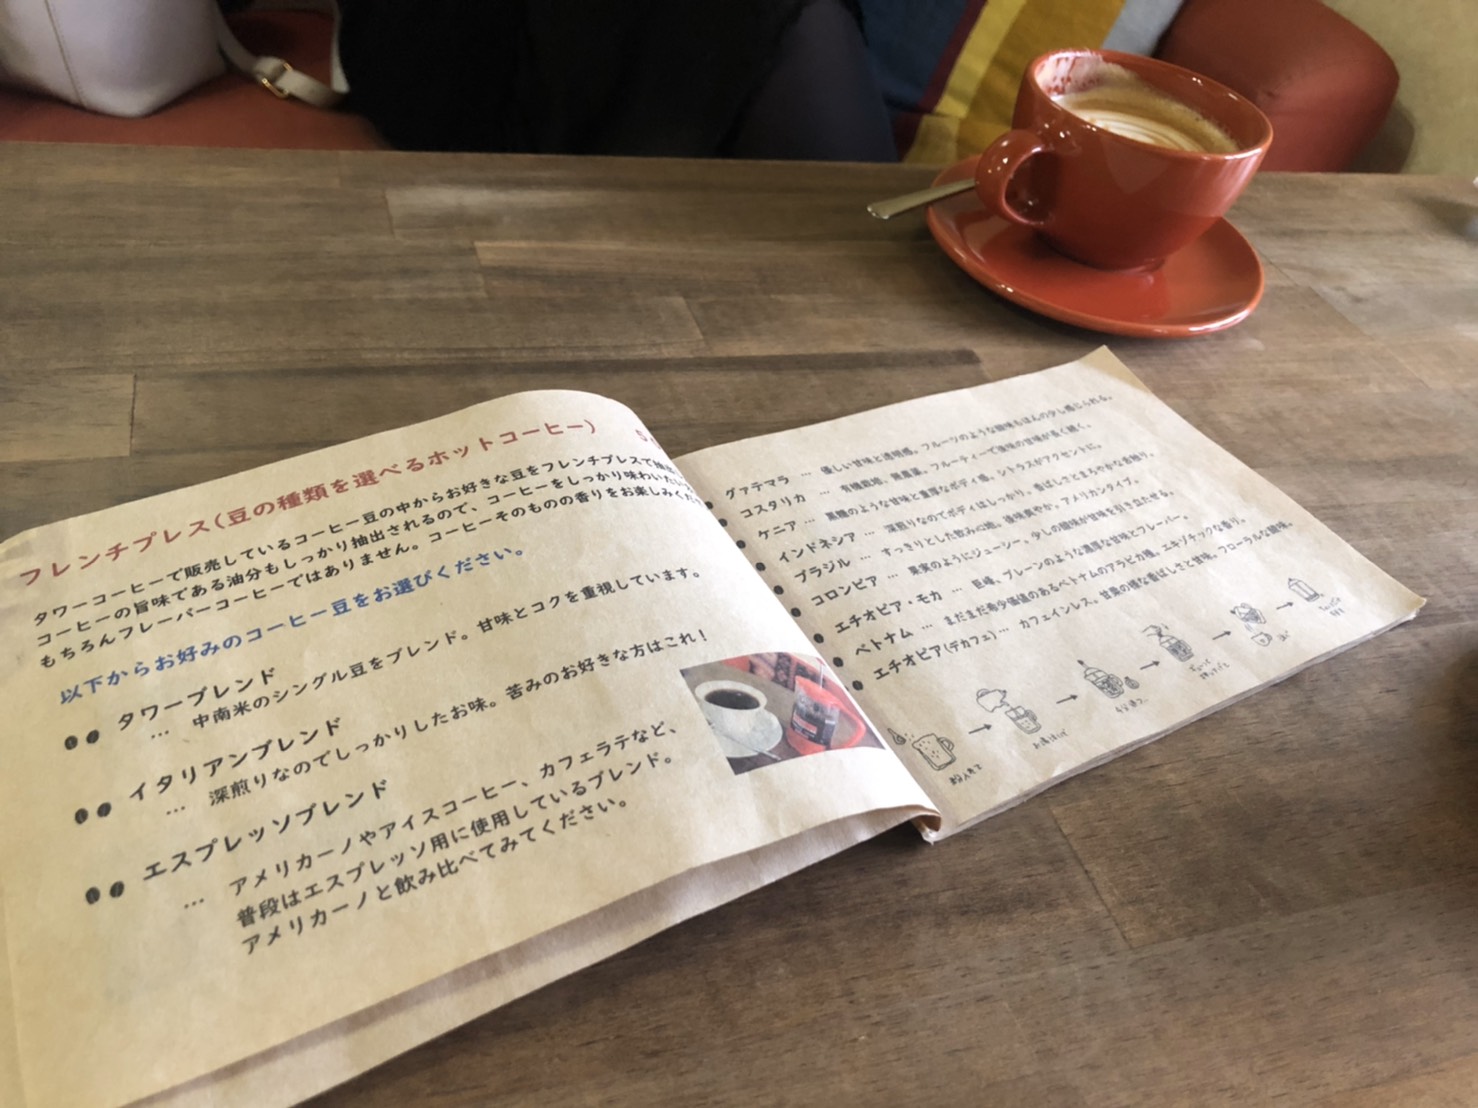 フレンチプレス（豆の種類を選べるホットコーヒー）
タワーコーヒーで販売しているコーヒー豆の中からお好きな豆をフレンチプレスで抽出
コーヒーの旨味である油分もしっかり抽出されるので、コーヒーをしっかり味わいたい
もちろんフレーバーコーヒーではありません。コーヒーそのものの香りをお楽しみくだ
以下からお好みのコーヒー豆をお選びください。
タワーブレンド
… 中南米のシングル豆をブレンド。甘味とコクを重視しています。
イタリアンブレンド
… 深煎りなのでしっかりしたお味。苦みのお好きな方はこれ！
エスプレッソブレンド
… アメリカーノやアイスコーヒー、カフェラテなど、
普段はエスプレッソ用に使用しているブレンド。
アメリカーノと飲み比べてみてください。
グァテマラ … 優しい甘味と透明感。フルーツのような酸味もほんの少し感じられる。
コスタリカ … 有機栽培、無農薬。フルーティーで後味の甘味が長く続く。
ケニア … 黒糖のような甘味と濃厚なボディ感。シトラスがアクセントに。
インドネシア … 深煎りなのでボディはしっかり。香ばしさとまろやかな舌触り。
ブラジル … すっきりとした飲み心地。後味爽やか。アメリカンタイプ。
コロンビア … 果実のようにジューシー。少しの酸味が甘味を引き立たせる。
エチオピア・モカ … 巨峰、プレーンのような濃厚な甘味とフレーバー。
ベトナム … まだまだ希少価値のあるベトナムのアラビカ種。エキゾチックな香り。
エチオピア(デカフェ)… カフェインレス。甘栗の様な香ばしさと甘味。フローラルな酸味。